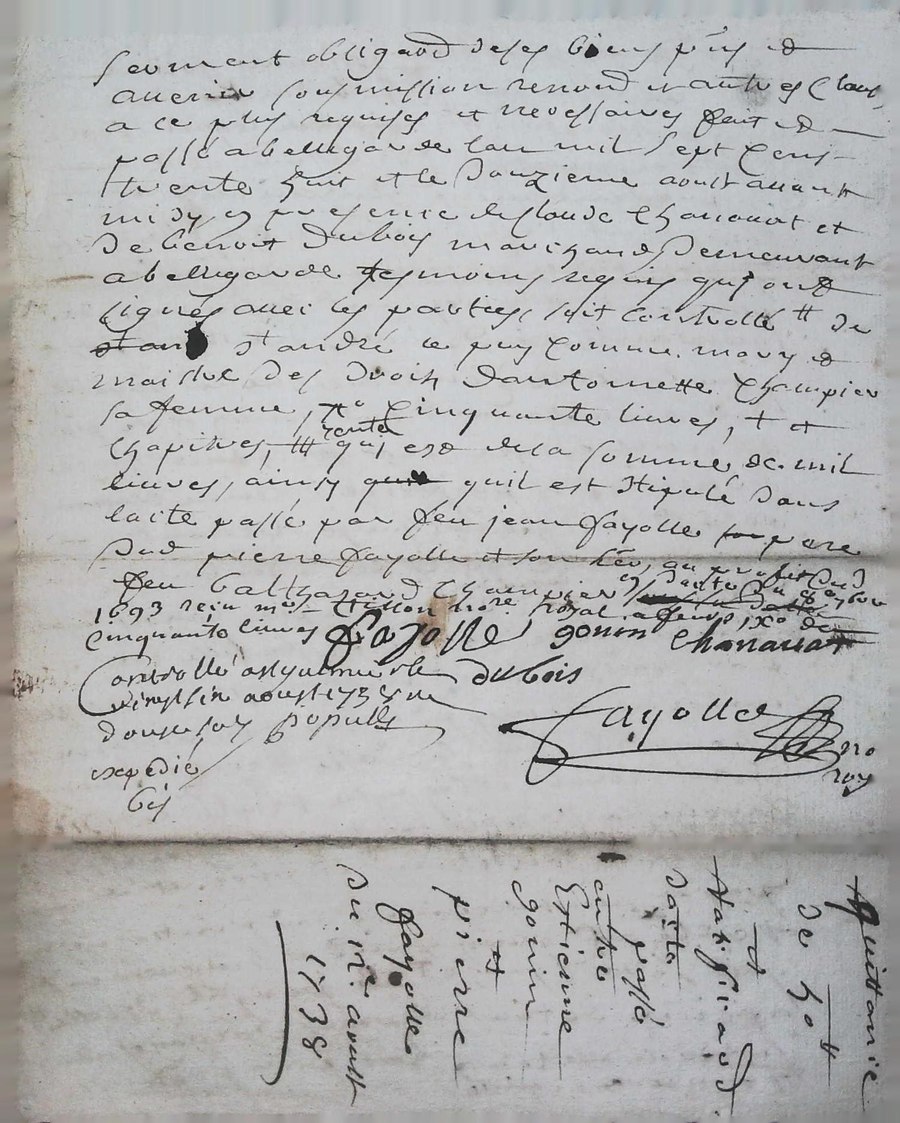 serment obligaon de ses biens p̄ns et
avenir soumission renonōn et autres claus
a ce plus requises et necessaires fait et
passé a bellegarde lan mil sept cens
trente huit et le douzieme aoust avant
midy en presence de claude Chanauat et
de benoit dubois marchand demeurant
a bellegarde tesmoins requis qui ont
signés avec les parties, soit controllé de
st andré ce puy comme mary et
maistre des droits dantoinette Champier
sa femme, cinquante livres, t et
chapitres, rente qui est de la somme de mil
livres, ainsy quil est stipulé dans
lacte passé par feu jean fayolle pere
dud pierre fayolle et son au profit dud
feu balthazard Champier en datte du
1693 receu me notre royal
cinquante livres fayolle gonin Chanauat
Controllé le dubois
vingt six aoust 1738 re
douze sols
fayolle no roy
expedié
Quittance
de 50 tt
et
Ratifficaōn
dacte
passé
entre
Etienne
gonin
et
pierre
fayolle
du 12e aoust
1738